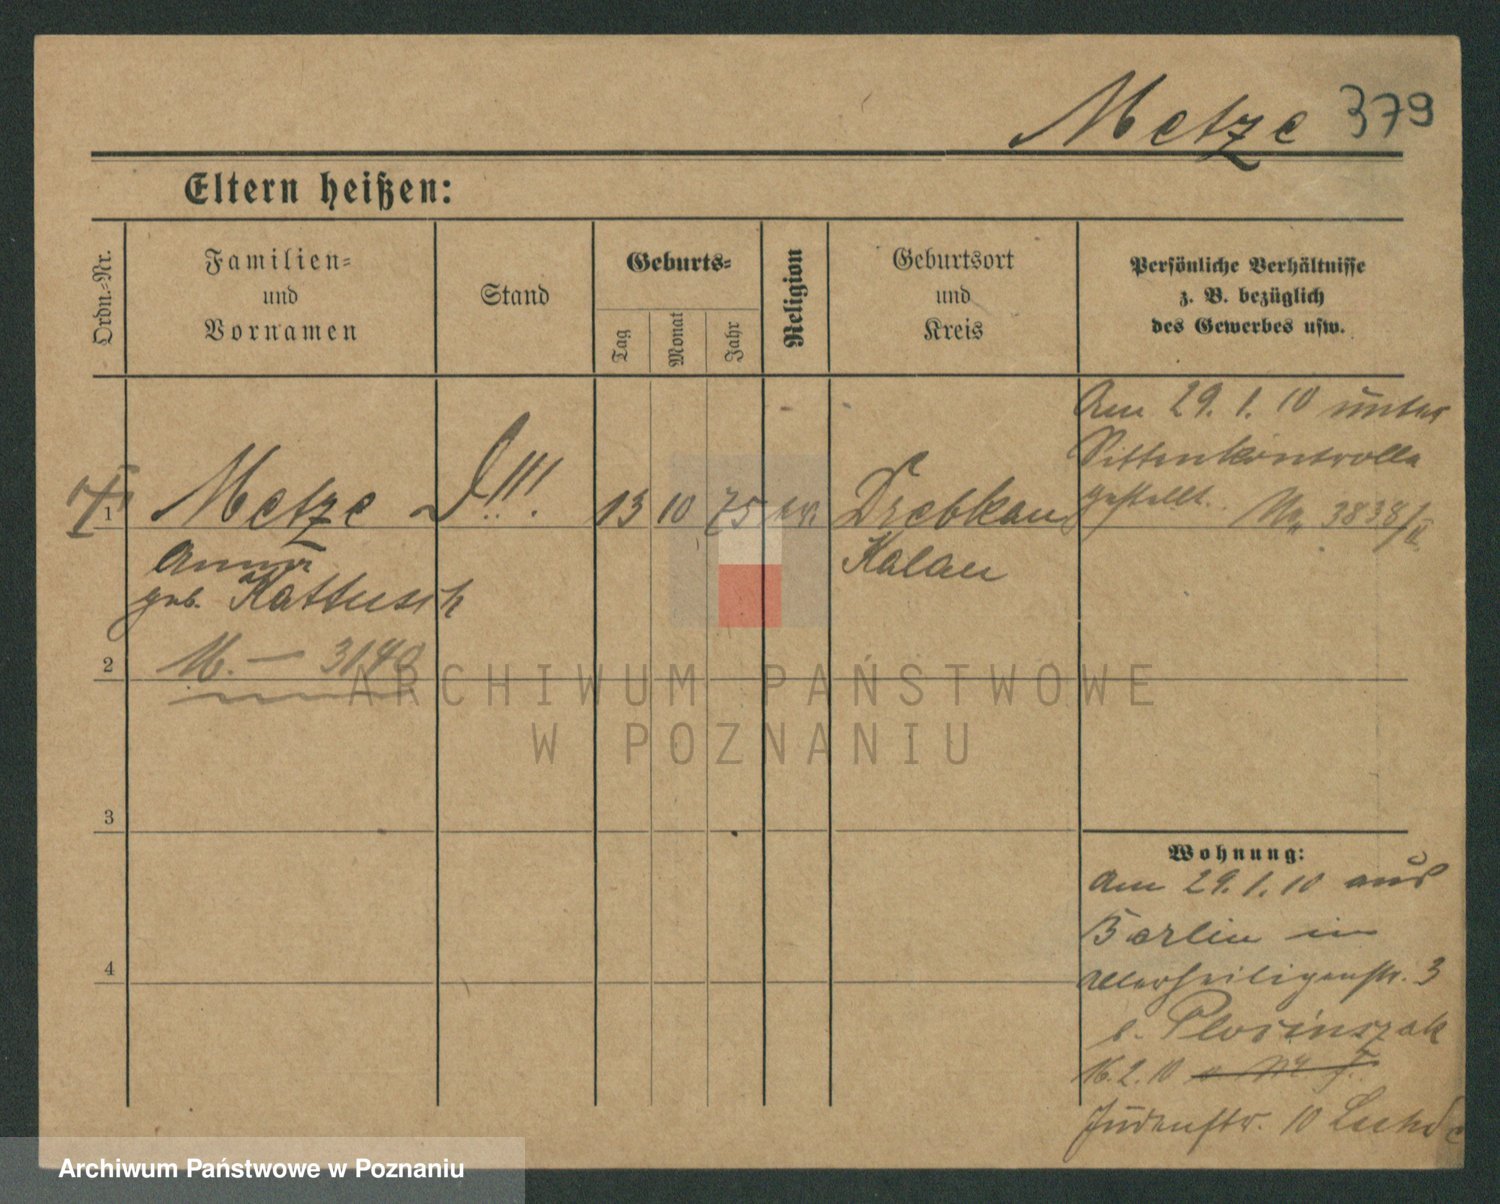 Metze 379
Eltern heißen:
Ordn.-Nr.
Familien-
und
Vornamen
Stand
Geburts-
Tag
Monat
Jahr
Religion
Geburtsort
und
Kreis
Persönliche Verhältnisse
z. B. bezüglich
des Gewerbes usw.
Am 29. 1. 10 unter
Sittenkontrolle
gestellt. 3838/II
1 Metze 13 10 75 ev. Drebkau
Anna
Kalau
geb. Kattusch
2 M. — 3140
3
4
Wohnung:
Am 29. 1. 10 aus
Berlin in
Allerheiligenstr. 3
b. Plocinszak
16. 2. 10
Judenstr. 10
ARCHIWUM PAŃSTWOWE
W POZNANIU
Archiwum Państwowe w Poznaniu